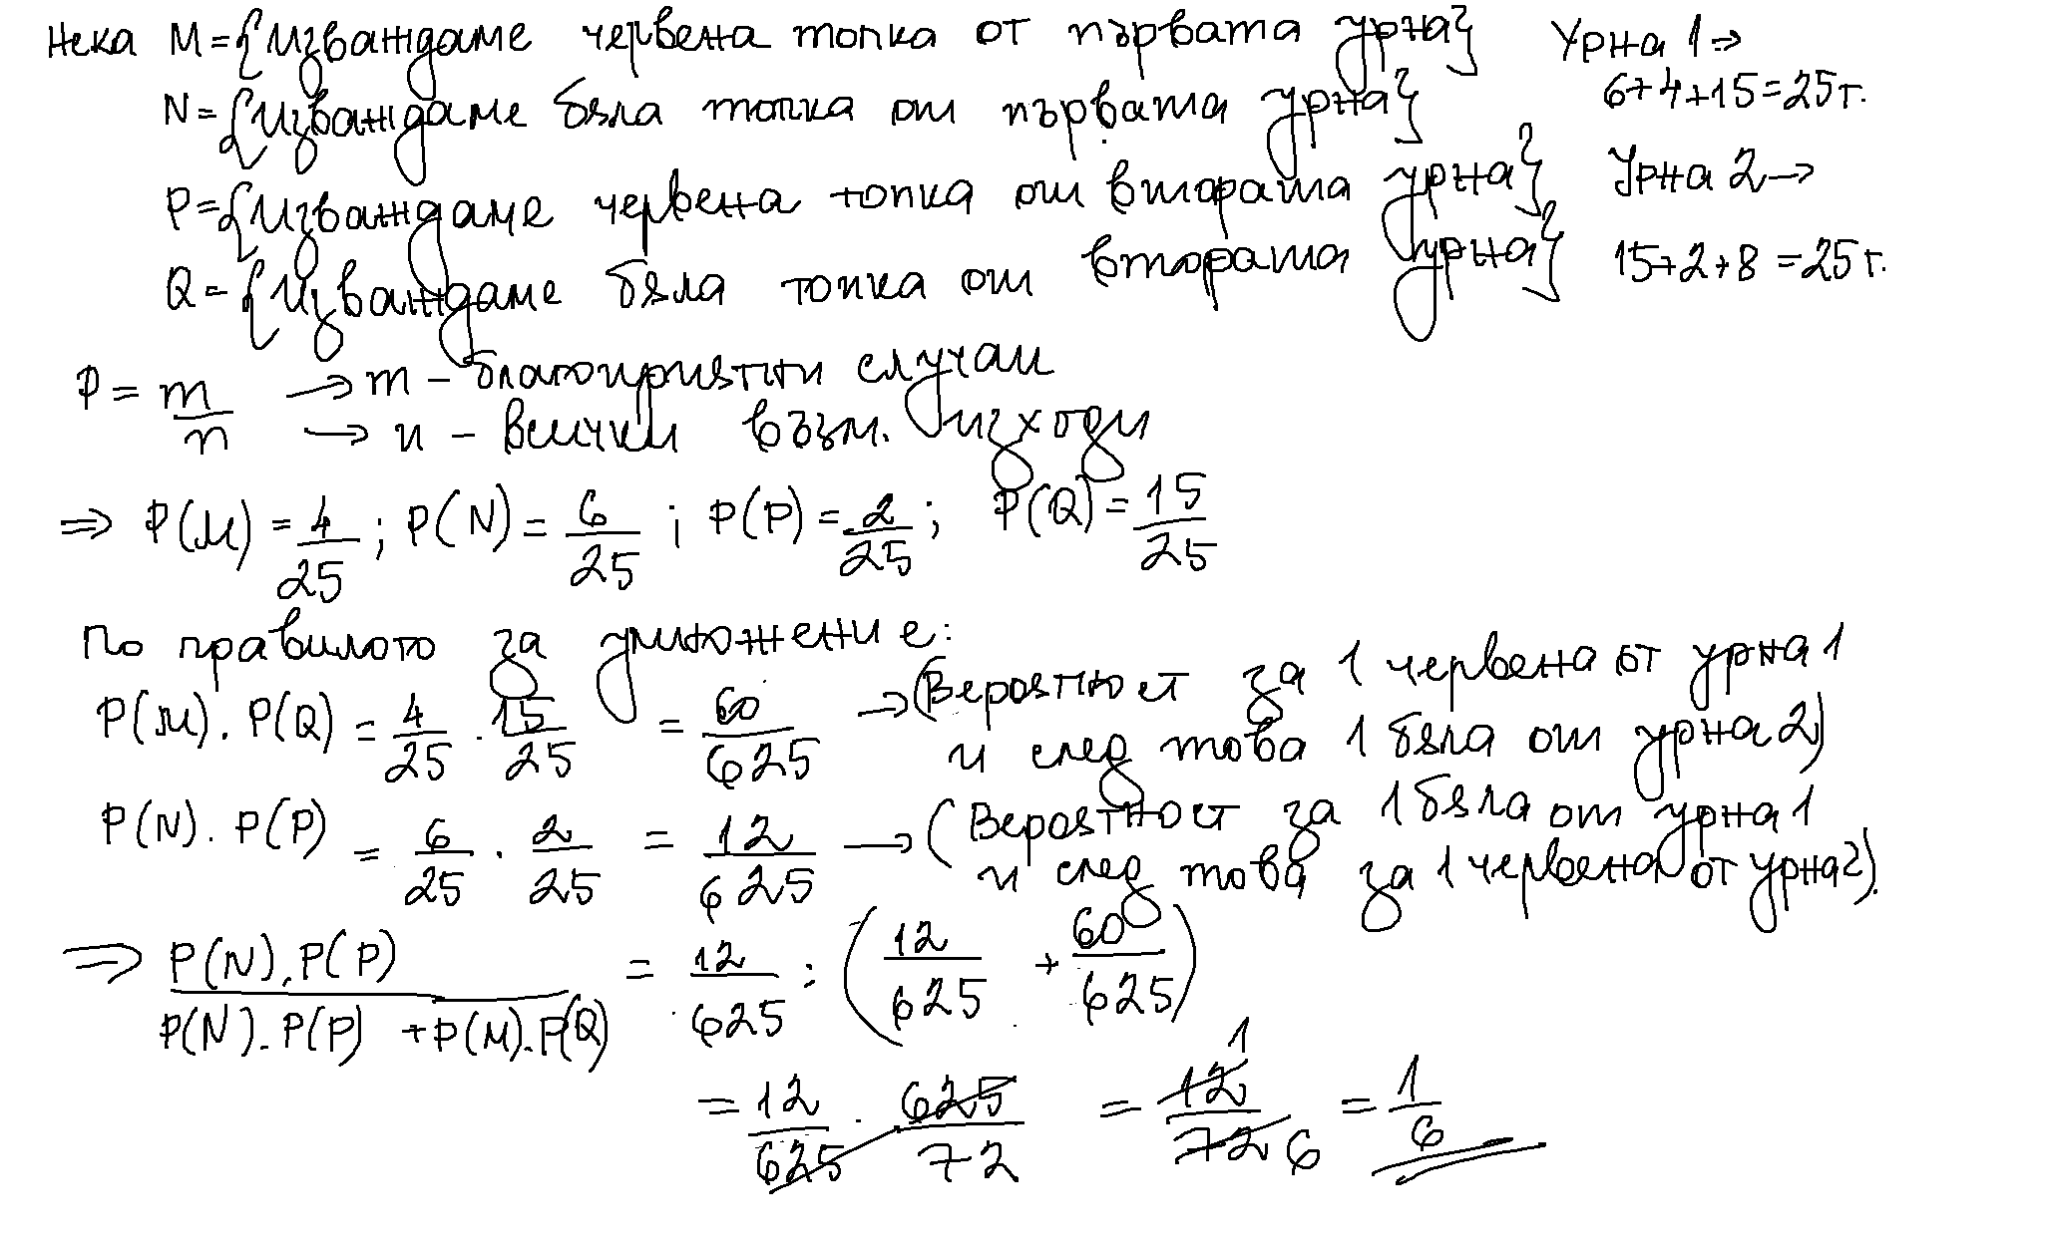 Нека M={Изваждаме червена топка от първата урна} Урна 1 ⇒
6+4+15=25т.
N={Изваждаме бяла топка от първата урна}
P={Изваждаме червена топка от втората урна} Урна 2 →
Q={Изваждаме бяла топка от втората урна} 15+2+8=25т.
P = m/n → m - благоприятни случаи
→ n - всички възм. изходи
⇒ P(M)=4/25; P(N)=6/25; P(P)=2/25; P(Q)=15/25
По правилото за умножение:
P(M).P(Q) = 4/25 . 15/25 = 60/625 → (Вероятност за 1 червена от урна 1
и след това 1 бяла от урна 2)
P(N).P(P) = 6/25 . 2/25 = 12/625 → (Вероятност за 1 бяла от урна 1
и след това за 1 червена от урна 2).
⇒ P(N).P(P) / P(N).P(P)+P(M).P(Q) = 12/625 : (12/625 + 60/625)
= 12/625 . 625/72 = 12/72 1 6 = 1/6